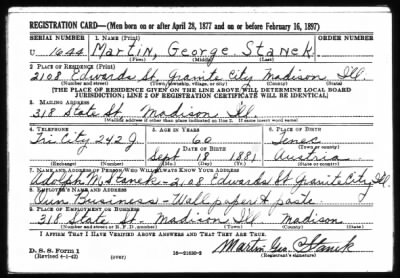 REGISTRATION CARD—(Men born on or after April 28, 1877 and on or before February 16, 1897)
SERIAL NUMBER 1. NAME (Print) ORDER NUMBER
U 1644 Martin, George Stanek
(First) (Middle) (Last)
2. PLACE OF RESIDENCE (Print)
2108 Edwards St. Granite City Madison Ill.
(Number and street) (Town, township, village, or city) (County) (State)
[THE PLACE OF RESIDENCE GIVEN ON THE LINE ABOVE WILL DETERMINE LOCAL BOARD
JURISDICTION; LINE 2 OF REGISTRATION CERTIFICATE WILL BE IDENTICAL]
3. MAILING ADDRESS
318 State St. Madison Ill.
(Mailing address if other than place indicated on line 2. If same insert word same)
4. TELEPHONE 5. AGE IN YEARS 6. PLACE OF BIRTH
Tri City 242 J 60
DATE OF BIRTH (Town or county)
Sept 18 1881 Austria
(Exchange) (Number) (Mo.) (Day) (Yr.) (State or country)
7. NAME AND ADDRESS OF PERSON WHO WILL ALWAYS KNOW YOUR ADDRESS
Adolph M. Stanek - 2108 Edwards St Granite City, Ill.
8. EMPLOYER'S NAME AND ADDRESS
Own Business - Wallpaper & paste.
9. PLACE OF EMPLOYMENT OR BUSINESS
318 State St. Madison Ill Madison
(Number and street or R. F. D. number) (Town) (County) (State)
I AFFIRM THAT I HAVE VERIFIED ABOVE ANSWERS AND THAT THEY ARE TRUE.
Martin Geo. Stanek
D. S. S. Form 1
(Revised 4-1-42) (over) 16—21630-2